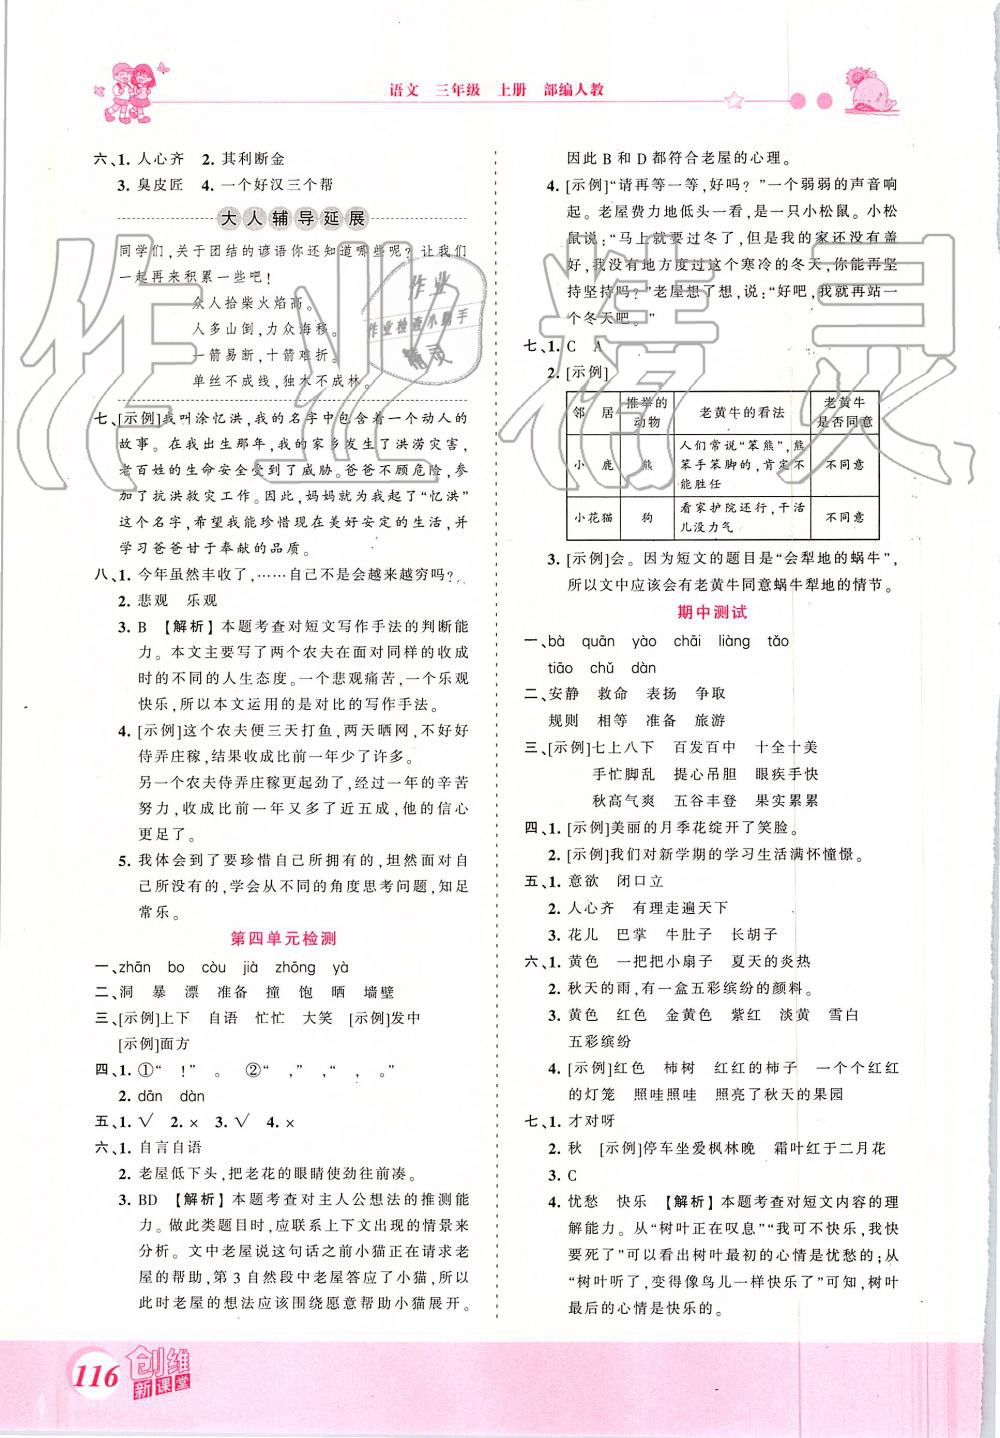 语文 三年级 上册 部编人教
六、1. 人心齐 2. 其利断金
3. 臭皮匠 4. 一个好汉三个帮
大人辅导延展
同学们,关于团结的谚语你还知道哪些呢?让我们
一起再来积累一些吧!
众人拾柴火焰高。
人多山倒,力众海移。
一箭易断,十箭难折。
单丝不成线,独木不成林。
七、[示例]我叫涂忆洪,我的名字中包含着一个动人的
故事。在我出生那年,我的家乡发生了洪涝灾害,
老百姓的生命安全受到了威胁。爸爸不顾危险,参
加了抗洪救灾工作。因此,妈妈就为我起了“忆洪”
这个名字,希望我能珍惜现在美好安定的生活,并
学习爸爸甘于奉献的品质。
八、1. 今年虽然丰收了,……自己不是会越来越穷吗?
2. 悲观 乐观
3. B 【解析】本题考查对短文写作手法的判断能
力。本文主要写了两个农夫在面对同样的收成
时的不同的人生态度。一个悲观痛苦,一个乐观
快乐,所以本文运用的是对比的写作手法。
4. [示例]这个农夫便三天打鱼,两天晒网,不好好
侍弄庄稼,结果收成比前一年少了许多。
另一个农夫侍弄庄稼更起劲了,经过一年的辛苦
努力,收成比前一年又多了近五成,他的信心
更足了。
5. 我体会到了要珍惜自己所拥有的,坦然面对自
己所没有的,学会从不同的角度思考问题,知足
常乐。
第四单元检测
一、zhān bo còu jià zhōng yà
二、洞 暴 漂 准备 撞 饱 晒 墙壁
三、[示例]上下 自语 忙忙 大笑 [示例]发中
[示例]面方
四、1. ①“ !” 。 ②“ ,” ,“ 。”
2. dān dàn
五、1. √ 2. × 3. √ 4. ×
六、1. 自言自语
2. 老屋低下头,把老花的眼睛使劲往前凑。
3. BD 【解析】本题考查对主人公想法的推测能
力。做此类题目时,应联系上下文出现的情景来
分析。文中老屋说这句话之前小猫正在请求老
屋的帮助,第 3 自然段中老屋答应了小猫,所以
此时老屋的想法应该围绕愿意帮助小猫展开。
因此 B 和 D 都符合老屋的心理。
4. [示例]“请再等一等,好吗?”一个弱弱的声音响
起。老屋费力地低头一看,是一只小松鼠。小松
鼠说:“马上就要过冬了,但是我的家还没有盖
好,我没有地方度过这个寒冷的冬天,你能再坚
持坚持吗?”老屋想了想,说:“好吧,我就再站一
个冬天吧。”
七、1. C A
2. [示例]
邻 居 推举的动物 老黄牛的看法 老黄牛是否同意
小 鹿 熊 人们常说“笨熊”,熊笨手笨脚的,肯定不能胜任 不同意
小花猫 狗 看家护院还行,干活儿没力气 不同意
3. [示例]会。因为短文的题目是“会犁地的蜗牛”,
所以文中应该会有老黄牛同意蜗牛犁地的情节。
期中测试
一、bà quān yào chāi liàng tǎo
tiāo chǔ dàn
二、安静 救命 表扬 争取
规则 相等 准备 旅游
三、[示例]七上八下 百发百中 十全十美
手忙脚乱 提心吊胆 眼疾手快
秋高气爽 五谷丰登 果实累累
四、1. [示例]美丽的月季花绽开了笑脸。
2. [示例]我们对新学期的学习生活满怀憧憬。
五、1. 意欲 闭口立
2. 人心齐 有理走遍天下
3. 花儿 巴掌 牛肚子 长胡子
六、1. 黄色 一把把小扇子 夏天的炎热
2. 秋天的雨,有一盒五彩缤纷的颜料。
3. 黄色 红色 金黄色 紫红 淡黄 雪白
五彩缤纷
4. [示例]红色 柿树 红红的柿子 一个个红红
的灯笼 照哇照哇 照亮了秋天的果园
七、1. 才对呀
2. 秋 [示例]停车坐爱枫林晚 霜叶红于二月花
3. C
4. 忧愁 快乐 【解析】本题考查对短文内容的理
解能力。从“树叶正在叹息”“我可不快乐,我快
要死了”可以看出树叶最初的心情是忧愁的;从
“树叶听了,变得像鸟儿一样快乐了”可知,树叶
最后的心情是快乐的。
116
创维
新课堂
作业精灵
作业
作业检查小助手
精灵